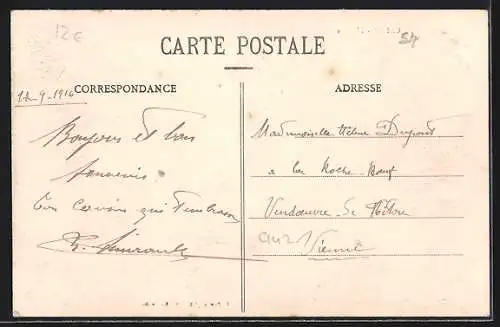 12€
CARTE POSTALE
CORRESPONDANCE
ADRESSE
9-1916
Bonjour et bons
souvenirs
Ton cousin qui t'embrasse
Mademoiselle Hélène Dupont
a la Roche-Boeuf
Vendoeuvre-
Vienne